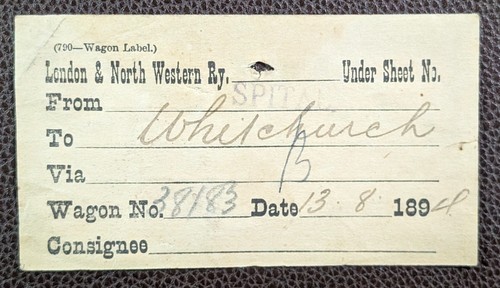 (790—Wagon Label.)
London & North Western Ry. Under Sheet No.
From SPITAL
To Whitchurch
Via
Wagon No. 38183 Date 13.8.1894
Consignee